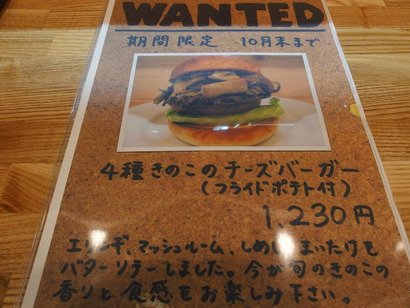 WANTED
期間限定 10月末まで
4種きのこのチーズバーガー
(フライドポテト付)
1,230円
エリンギ、マッシュルーム、しめじ、まいたけを
バターソテーしました。今が旬のきのこの
香りと食感をお楽しみ下さい